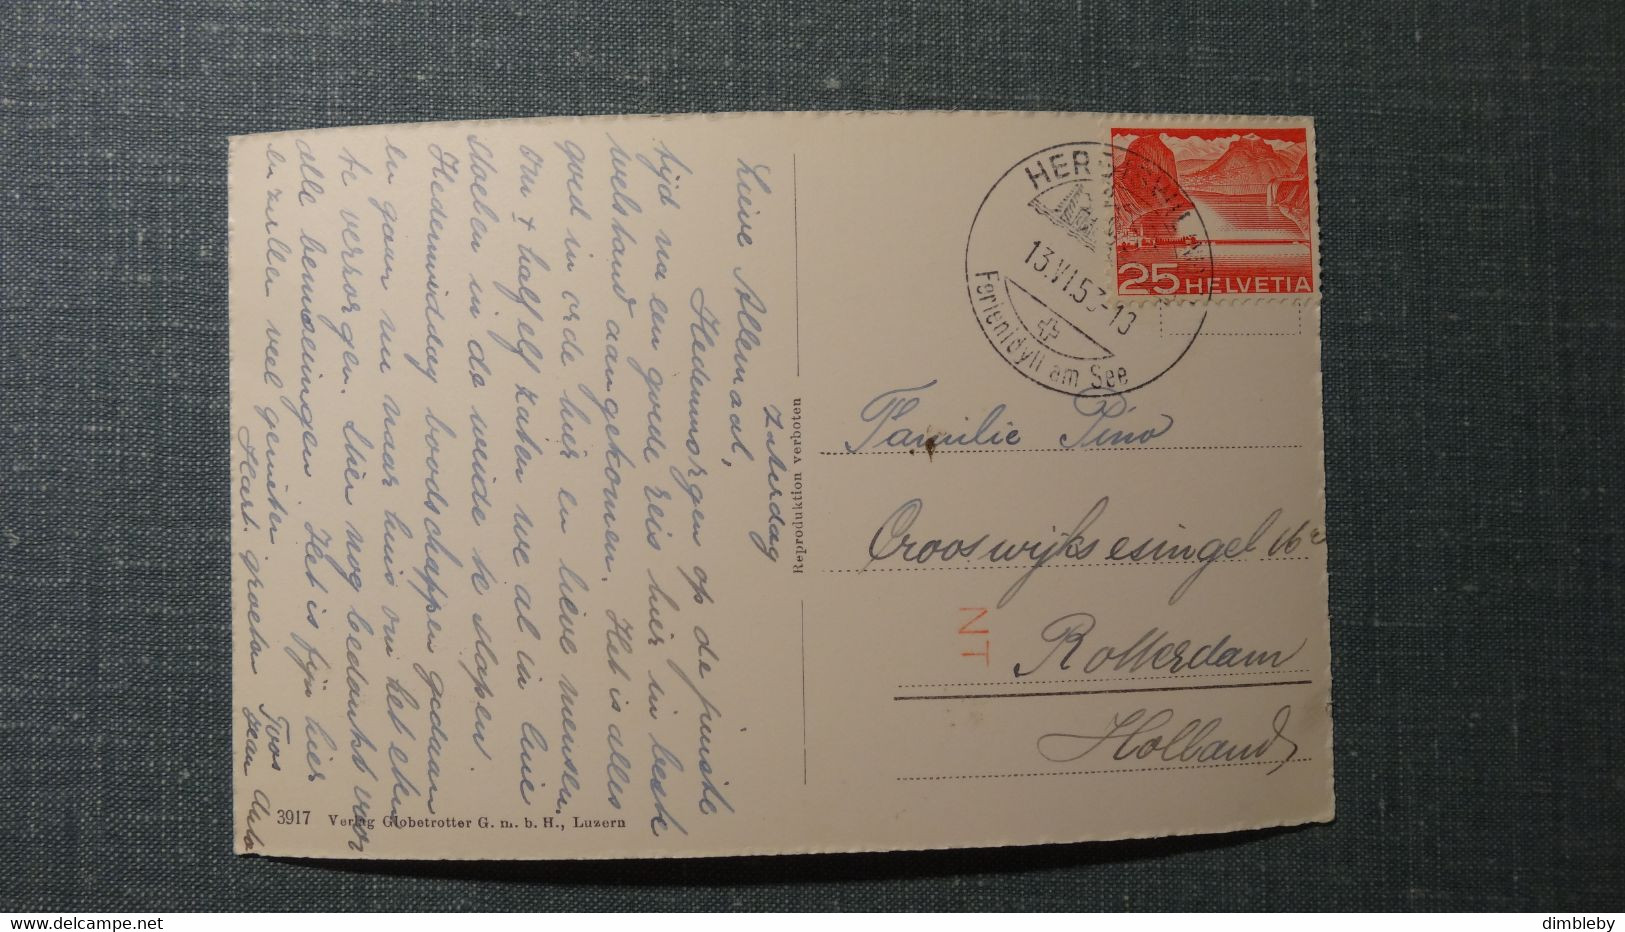 Zaterdag
Lieve Allemaal,
Hedenmorgen op de juiste
tijd na een goede reis hier in beste
welstand aangekomen. Het is alles
goed in orde hier en lieve mensen.
Om ± half elf zaten we al in
stoelen in de weide te slapen.
Hedenmiddag boodschappen gedaan
en gaan nu naar huis om het eten
te verzorgen. Hier nog bedankt voor
alle bemoeiingen. Het is fijn hier
en zullen veel genieten
Hart. groeten Toos
3917 Verlag Globetrotter G. m. b. H., Luzern
Reproduktion verboten
HERGISWIL
13.VI.53-13
Ferienidyll am See
25 HELVETIA
Familie Pino
Crooswijksesingel 16
NT
Rotterdam
Holland
delcampe.net
dimbleby